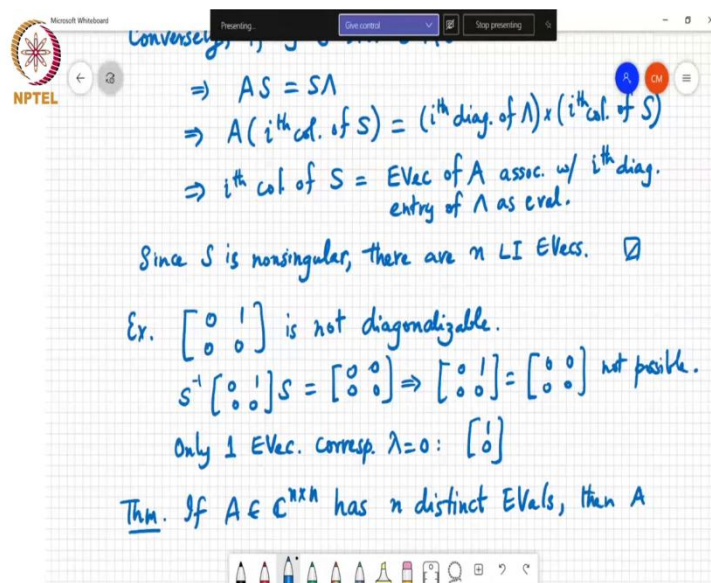 Microsoft Whiteboard
Presenting...
Give control
Stop presenting
NPTEL
CM
Conversely, if
⇒ AS = SΛ
⇒ A(iᵗʰ col. of S) = (iᵗʰ diag. of Λ) × (iᵗʰ col. of S)
⇒ iᵗʰ col of S = EVec of A assoc. w/ iᵗʰ diag.
entry of Λ as eval.
Since S is nonsingular, there are n LI EVecs.
Ex. [0 1; 0 0] is not diagonalizable.
S⁻¹ [0 1; 0 0] S = [0 0; 0 0] ⇒ [0 1; 0 0] = [0 0; 0 0] not possible.
Only 1 EVec. corresp. λ=0: [1; 0]
Thm. If A ∈ ℂⁿˣⁿ has n distinct EVals, then A